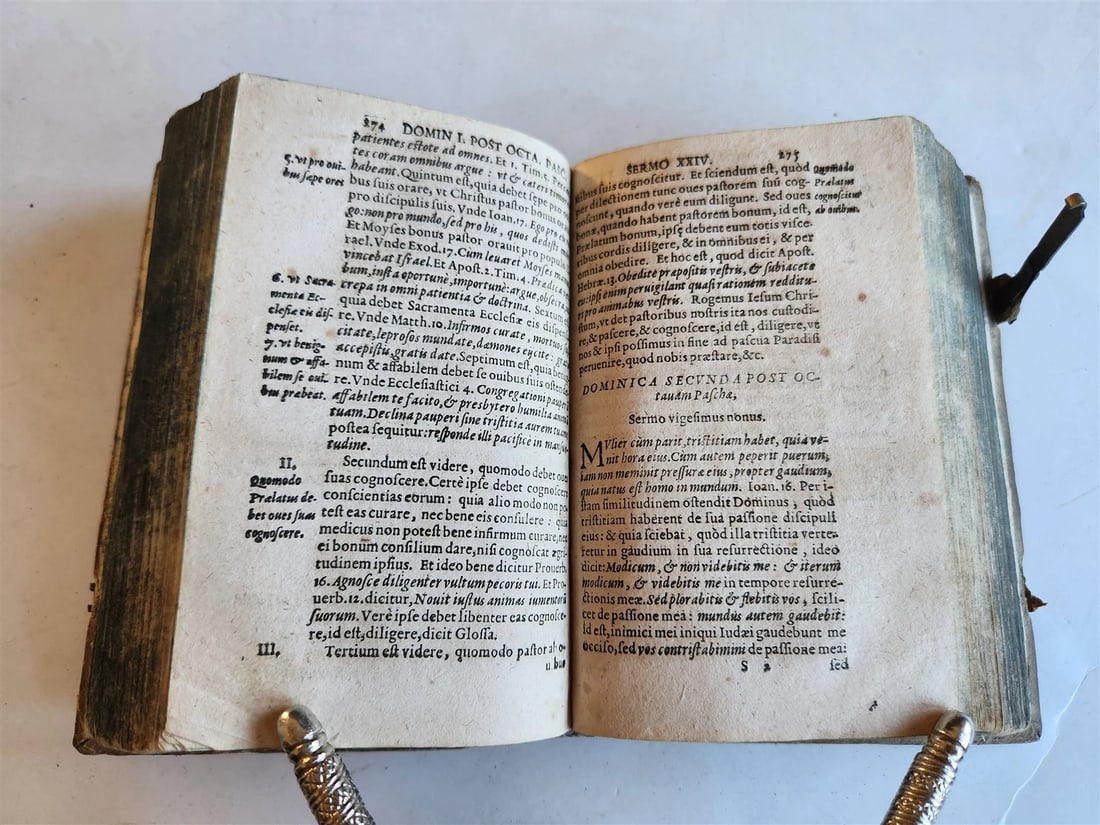 274 DOMIN I. POST OCTA.
patientes estote ad omnes. Et 1. Tim. 5.
tes coram omnibus argue: vt & cæteri
5. Vt pro oui-
bus sæpe oret
habeant. Quintum est, quia debet sæpe pro
bus suis orare, vt Christus pastor bonus
pro discipulis suis. Vnde Ioan. 17. Ego pro
go: non pro mundo, sed pro his, quos dedisti
Et Moyses bonus pastor orauit pro populo
rael. Vnde Exod. 17. Cum leuaret Moyses
vincebat Israel. Et Apost. 2. Tim. 4. Prædica
bum, insta oportunè, importunè: argue, obsecra,
6. Vt Sacra-
menta Ec-
clesiæ eis dis-
penset.
crepa in omni patientia & doctrina. Sextum
quia debet Sacramenta Ecclesiæ eis dispen
re. Vnde Matth. 10. Infirmos curate, mortuos
citate, leprosos mundate, dæmones eycite: gratis
accepistis, gratis date. Septimum est, quia
7. Vt benig-
num & affa-
bilem se oui-
bus præbeat.
num & affabilem debet se ouibus suis
re. Vnde Ecclesiastici 4. Congregationi pauperum
affabilem te facito, & presbytero humilia animam
tuam. Declina pauperi sine tristitia aurem tuam
postea sequitur: responde illi pacificè in mansue
tudine.
II.
Quomodo
Prælatus de-
bet oues suas
cognoscere.
Secundum est videre, quomodo debet oues
suas cognoscere. Certè ipse debet cognoscere
conscientias eorum: quia alio modo non po
test eas curare, nec bene eis consulere: quia
medicus non potest bene infirmum curare, nec
ei bonum consilium dare, nisi cognoscat ægri
tudinem ipsius. Et ideo bene dicitur Prouerb.
16. Agnosce diligenter vultum pecoris tui. Et Pro-
uerb. 12. dicitur, Nouit iustus animas iumentorum
suorum. Verè ipse debet libenter eas cognosce-
re, id est, diligere, dicit Glossa.
III. Tertium est videre, quomodo pastor ab o-
u.bus
SERMO XXIV. 275
uibus suis cognoscitur. Et sciendum est, quòd
Quomodo
Prælatus
cognoscitur
ab ouibus.
per dilectionem tunc oues pastorem suũ cog-
noscunt, quando verè eum diligunt. Sed oues
bonæ, quando habent pastorem bonum, id est,
Prælatum bonum, ipsę debent eum totis visce-
ribus cordis diligere, & in omnibus ei, & per
omnia obedire. Et hoc est, quod dicit Apost.
Hebræ. 13. Obedite præpositis vestris, & subiacete
eis: ipsi enim peruigilant quasi rationem redditu-
ri pro animabus vestris. Rogemus Iesum Chri-
stum, vt det pastoribus nostris ita nos custodi-
re, & pascere, & cognoscere, id est, diligere, vt
nos & ipsi possimus in fine ad pascua Paradisi
peruenire, quod nobis præstare, &c.
DOMINICA SECVNDA POST OC-
tauam Paschæ,
Sermo vigesimus nonus.
MVlier cùm parit, tristitiam habet, quia ve-
nit hora eius. Cùm autem peperit puerum,
iam non meminit pressuræ eius, propter gaudium,
quia natus est homo in mundum. Ioan. 16. Per i-
stam similitudinem ostendit Dominus, quòd
tristitiam haberent de sua passione discipuli
eius: & quia sciebat, quòd illa tristitia verte-
retur in gaudium in sua resurrectione, ideo
dicit: Modicum, & non videbitis me: & iterum
modicum, & videbitis me in tempore resurre-
ctionis meæ. Sed plorabitis & flebitis vos, scili-
cet de passione mea: mundus autem gaudebit:
id est, inimici mei iniqui Iudæi gaudebunt me
occiso, sed vos contristabimini de passione mea:
S 2 sed